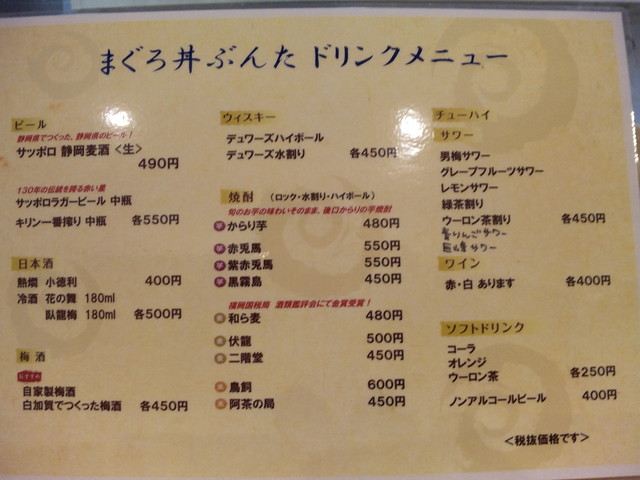 まぐろ丼ぶんた ドリンクメニュー
ビール
静岡県でつくった、静岡県のビール！
サッポロ 静岡麦酒〈生〉
490円
130年の伝統を誇る赤い星
サッポロラガービール 中瓶
キリン一番搾り 中瓶 各550円
日本酒
熱燗 小徳利 400円
冷酒 花の舞 180ml
臥龍梅 180ml 各500円
梅酒
おすすめ
自家製梅酒
白加賀でつくった梅酒 各450円
ウィスキー
デュワーズハイボール
デュワーズ水割り 各450円
焼酎 （ロック・水割り・ハイボール）
旬のお芋の味わいそのまま、後口からりの芋焼酎
芋 からり芋 480円
芋 赤兎馬 550円
芋 紫赤兎馬 550円
芋 黒霧島 450円
福岡国税局 酒類鑑評会にて金賞受賞！
麦 和ら麦 480円
麦 伏龍 500円
麦 二階堂 450円
米 鳥飼 600円
米 阿茶の局 450円
チューハイ
サワー
男梅サワー
グレープフルーツサワー
レモンサワー
緑茶割り
ウーロン茶割り 各450円
青りんごサワー
巨峰サワー
ワイン
赤・白 あります 各400円
ソフトドリンク
コーラ
オレンジ
ウーロン茶 各250円
ノンアルコールビール 400円
＜税抜価格です＞